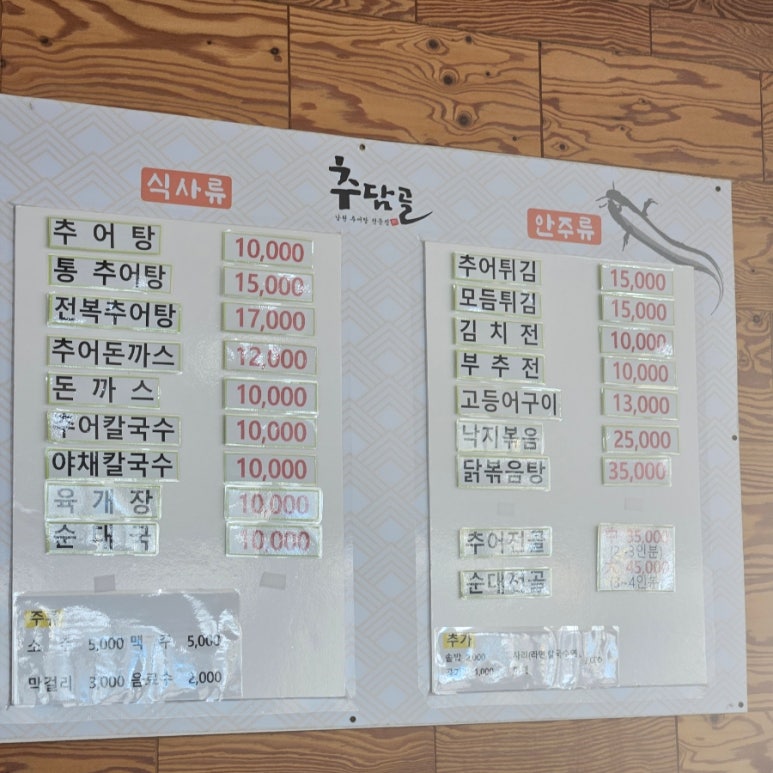 추담골
남원 추어탕 전문점
식사류
추 어 탕 10,000
통 추어탕 15,000
전복추어탕 17,000
추어돈까스 12,000
돈 까 스 10,000
추어칼국수 10,000
야채칼국수 10,000
육 개 장 10,000
순 대 국 10,000
주류
소 주 5,000 맥 주 5,000
막걸리 3,000 음료수 2,000
안주류
추어튀김 15,000
모듬튀김 15,000
김 치 전 10,000
부 추 전 10,000
고등어구이 13,000
낙지볶음 25,000
닭볶음탕 35,000
추어전골
순대전골
35,000
(2~3인분)
45,000
(3~4인분)
추가
솥밥 2,000 사리(라면,칼국수면,
1,000